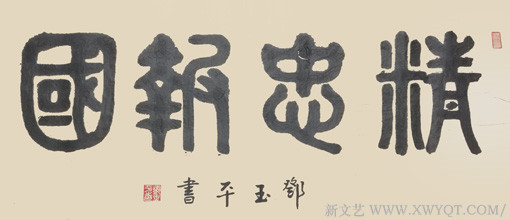 精忠報國
鄧玉平書
新文艺 / WWW.XWYQT.COM /